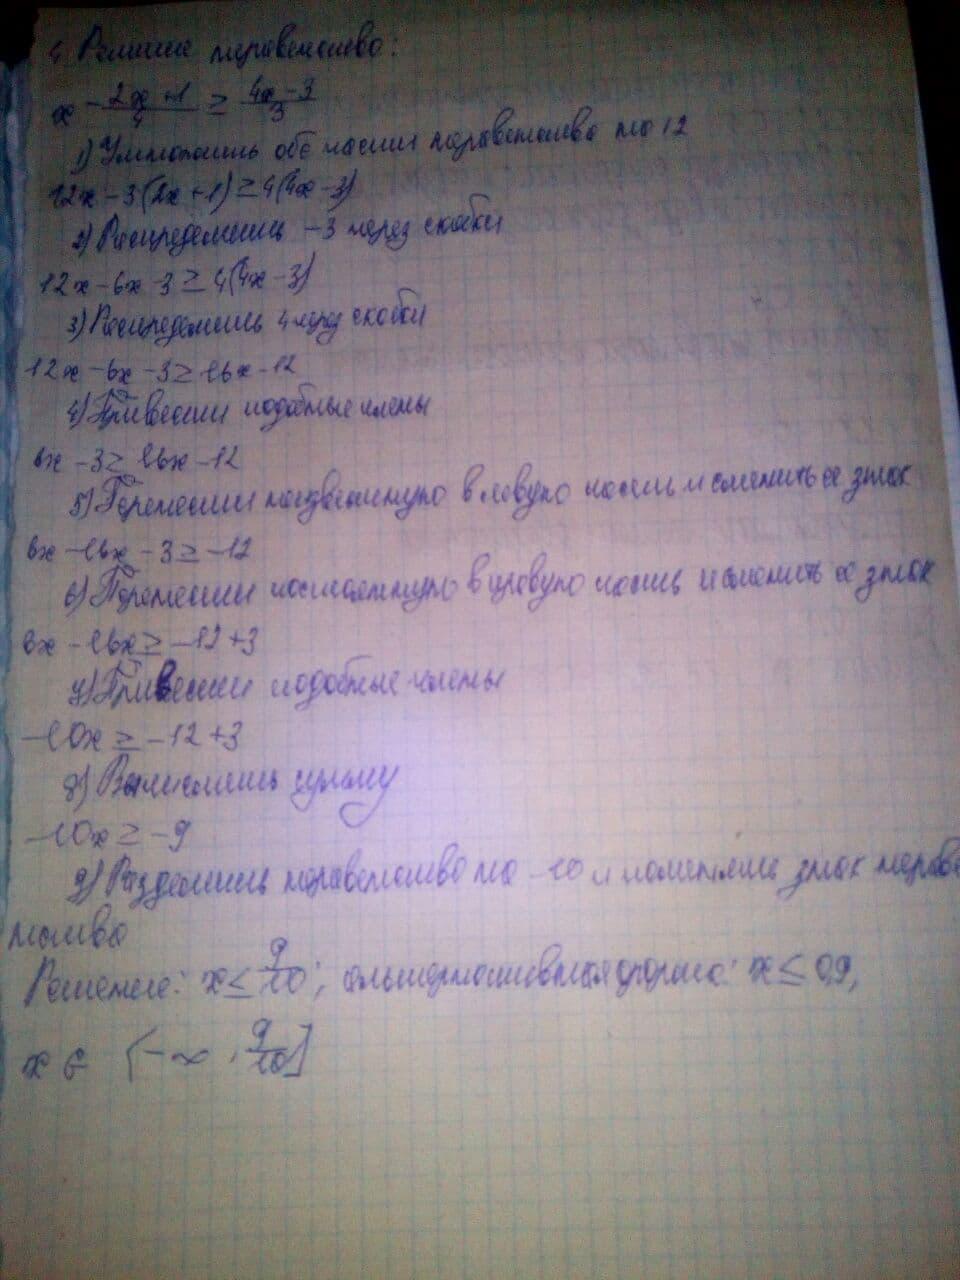 4. Решите неравенство:
x - \frac{2x+1}{4} ≥ \frac{4x-3}{3}
1) Умножить обе части неравенства на 12
12x - 3(2x+1) ≥ 4(4x-3)
2) Распределить -3 через скобки
12x - 6x - 3 ≥ 4(4x-3)
3) Распределить 4 через скобки
12x - 6x - 3 ≥ 16x - 12
4) Привести подобные члены
6x - 3 ≥ 16x - 12
5) Перенести неизвестную в левую часть и сменить ее знак
6x - 16x - 3 ≥ -12
6) Перенести постоянную в правую часть и сменить ее знак
6x - 16x ≥ -12 + 3
7) Привести подобные члены
-10x ≥ -12 + 3
8) Вычислить сумму
-10x ≥ -9
9) Разделить неравенство на -10 и поменять знак нераве
нства
Решение: x ≤ \frac{9}{10}; альтернативная форма: x ≤ 0,9,
x ∈ [-∞, \frac{9}{10}]